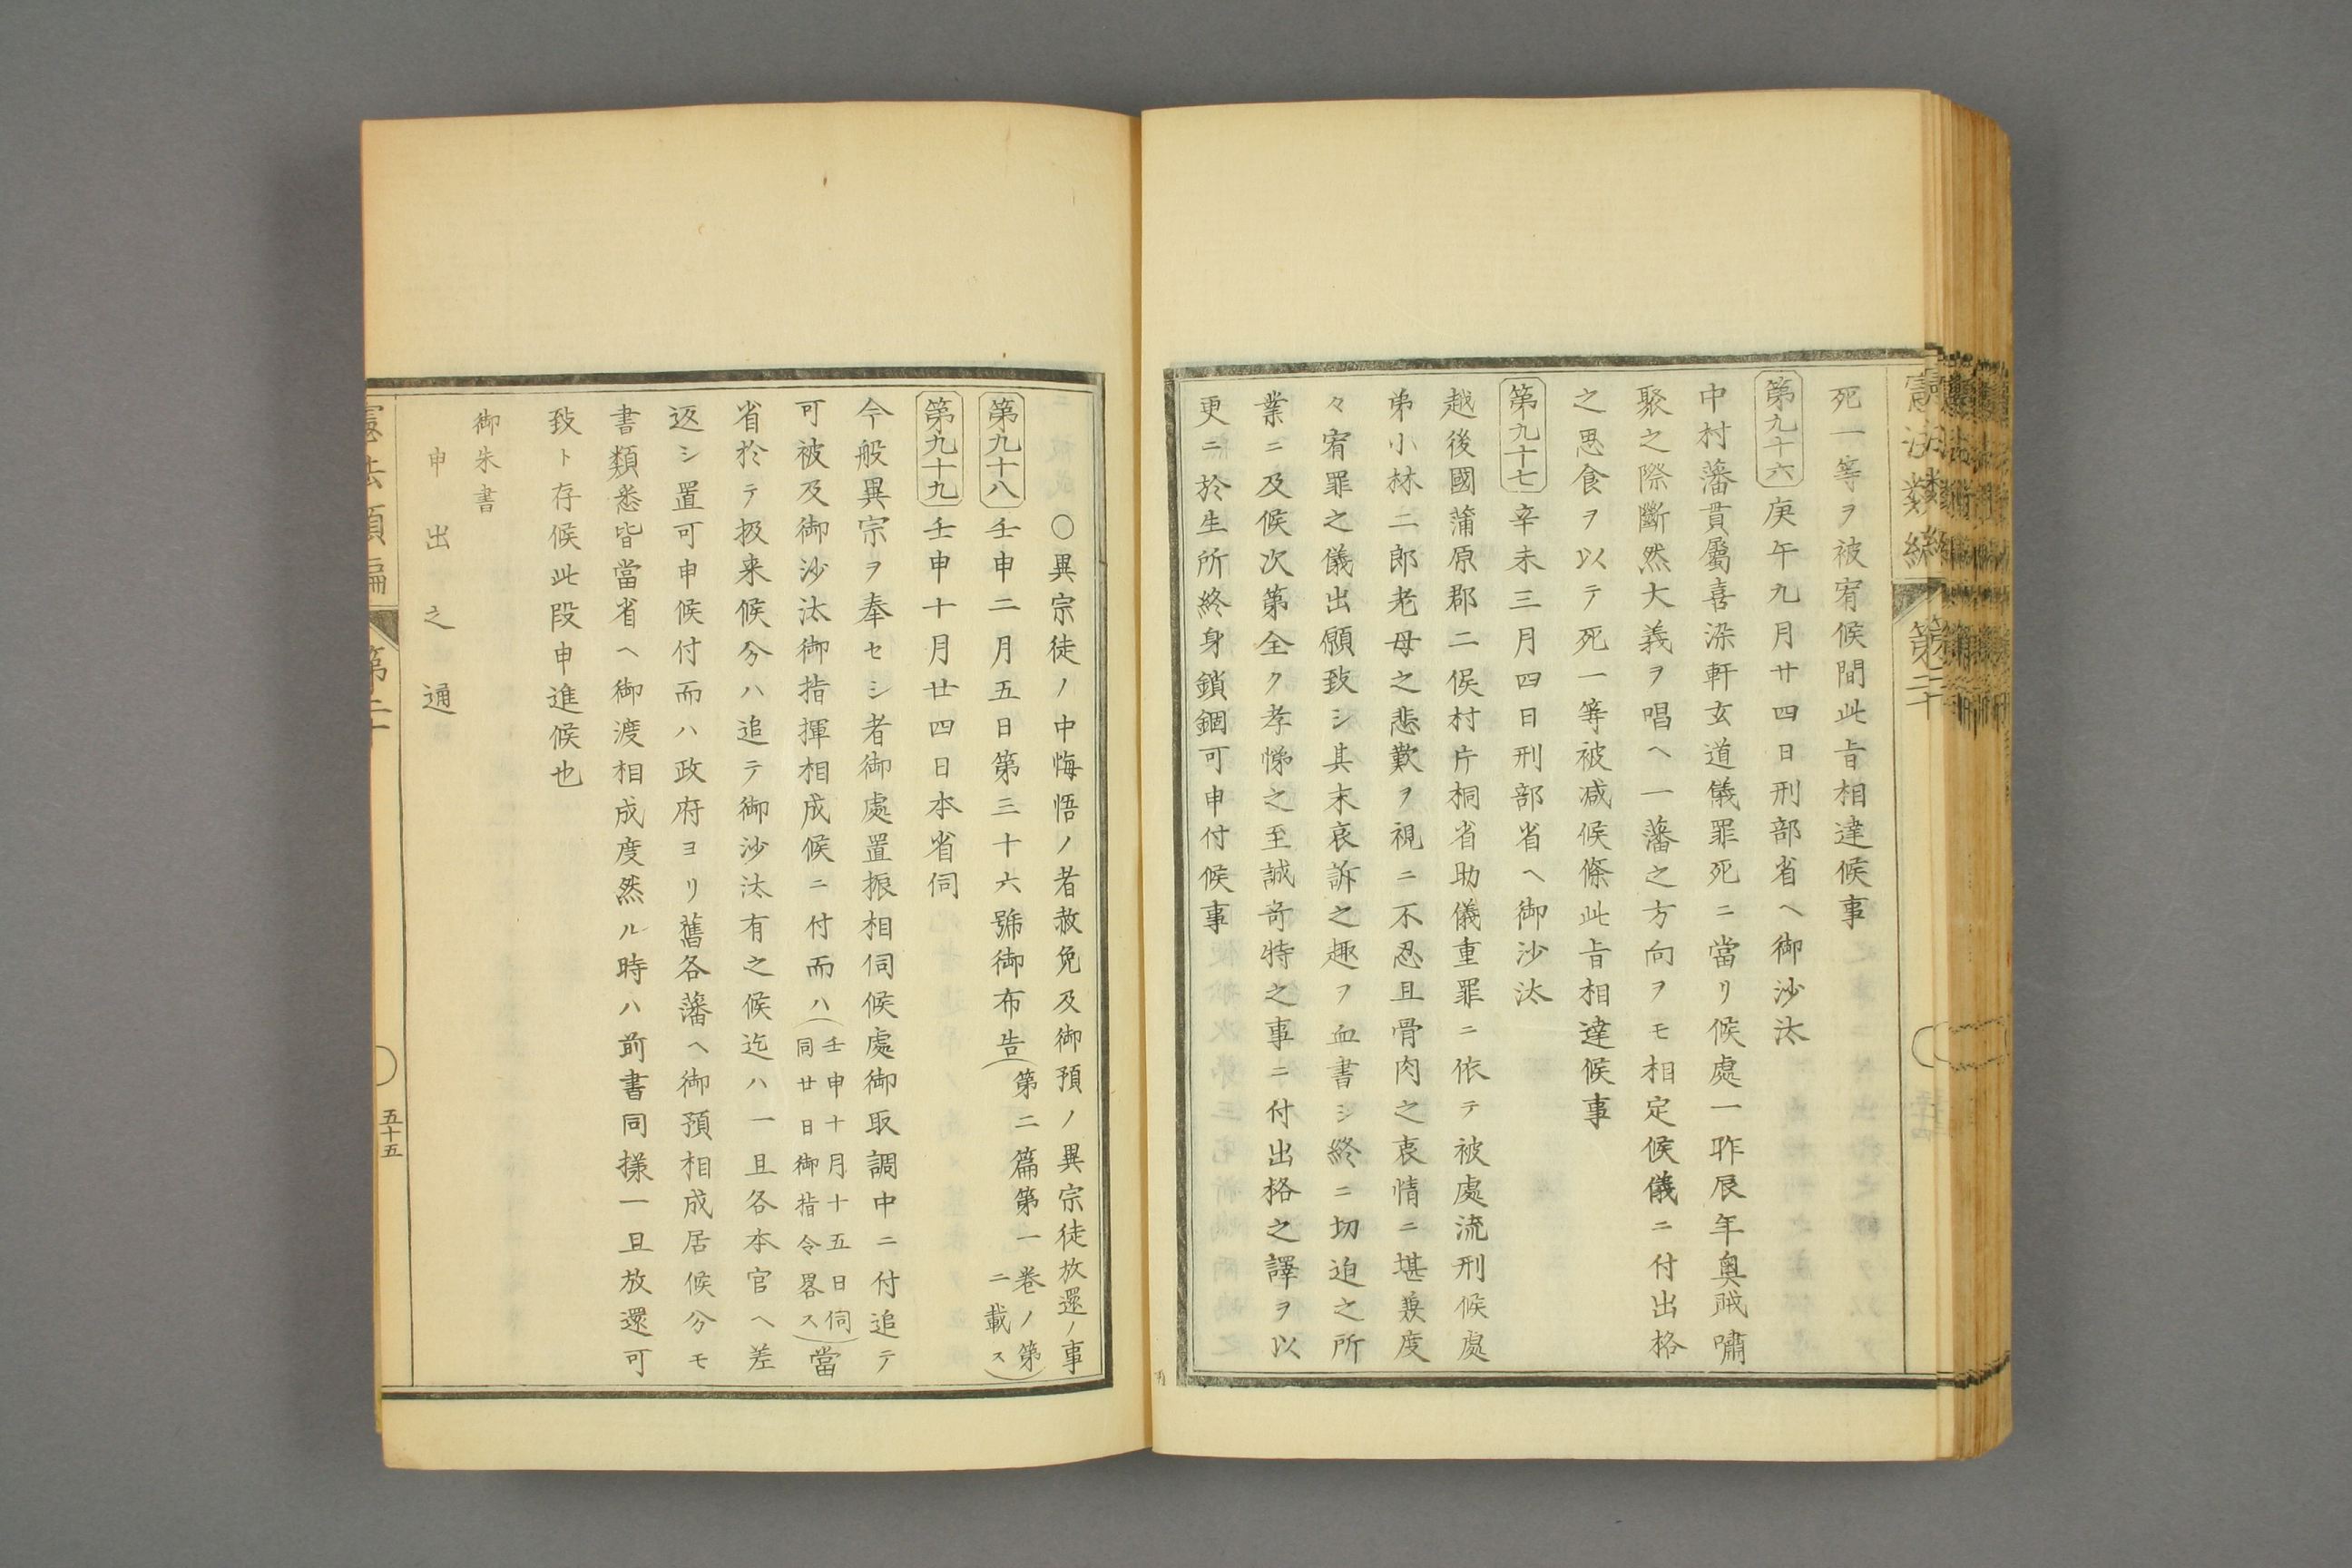 憲法類編 第二十
死一等ヲ被宥候間此旨相達候事
第九十六 庚午九月廿四日刑部省ヘ御沙汰
中村藩貫屬喜染軒玄道儀罪死ニ當リ候處一昨辰年奥賊嘯
聚之際斷然大義ヲ唱ヘ一藩之方向ヲモ相定候儀ニ付出格
之思食ヲ以テ死一等被减候條此旨相達候事
第九十七 辛未三月四日刑部省ヘ御沙汰
越後國蒲原郡二俣村片桐省助儀重罪ニ依テ被處流刑候處
弟小林二郎老母之悲歎ヲ視ニ不忍且骨肉之哀情ニ堪兼度
々宥罪之儀出願致シ其末哀訴之趣ヲ血書シ終ニ切迫之所
業ニ及候次第全ク孝悌之至誠竒特之事ニ付出格之譯ヲ以
更ニ於生所終身鎖錮可申付候事
〇異宗徒ノ中悔悟ノ者赦免及御預ノ異宗徒放還ノ事
第九十八 壬申二月五日第三十六號御布告(第二篇第一卷ノ第
ニ載ス)
第九十九 壬申十月廿四日本省伺
今般異宗ヲ奉セシ者御處置振相伺候處御取調中ニ付追テ
可被及御沙汰御指揮相成候ニ付而ハ(壬申十月十五日伺
同廿日御指令畧ス)當
省於テ扱来候分ハ追テ御沙汰有之候迄ハ一旦各本官ヘ差
返シ置可申候付而ハ政府ヨリ舊各藩ヘ御預相成居候分モ
書類悉皆當省ヘ御渡相成度然ル時ハ前書同様一旦放還可
致ト存候此段申進候也
御朱書
申出之通
憲法類編 第二十 五十五